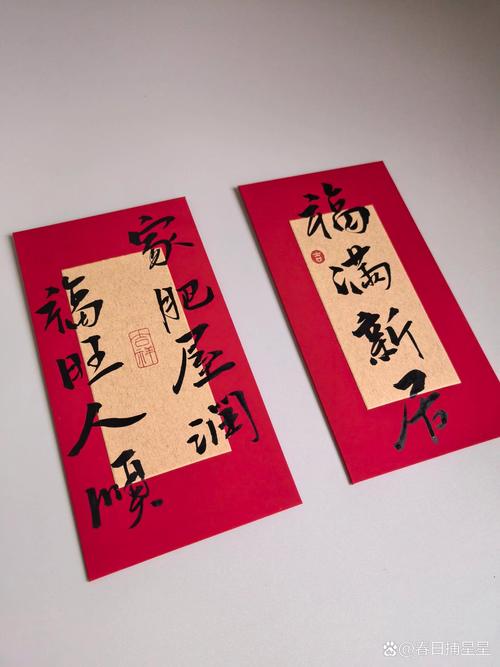 家肥屋润
福旺人顺
吉祥
福满新居
吉
春日捕星星